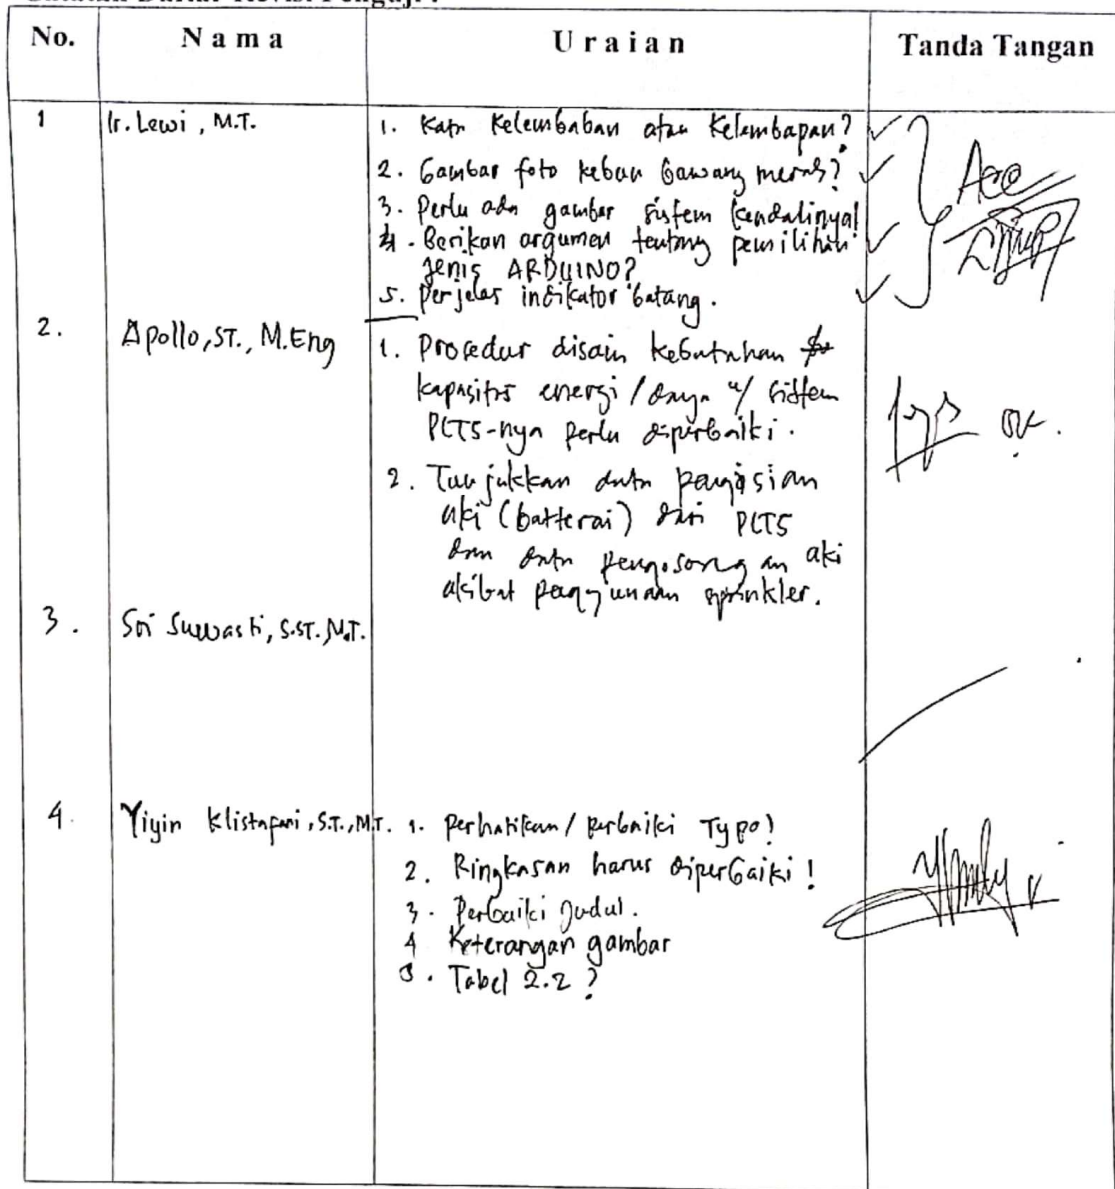 No.
N a m a
U r a i a n
Tanda Tangan
1
Ir. Lewi, M.T.
1. Kata Kelembaban atau Kelembapan?
2. Gambar foto kebun bawang merah?
3. Perlu ada gambar sistem kendalinya!
4. Berikan argumen tentang pemilihan
jenis ARDUINO?
5. Perjelas indikator batang.
Acc
2.
Apollo, ST., M.Eng
1. Prosedur disain kebutuhan
kapasitas energi / daya u/ sistem
PLTS-nya perlu diperbaiki.
2. Tunjukkan data pengisian
aki (batterai) dari PLTS
dan data pengosongan aki
akibat penggunaan sprinkler.
ok.
3.
Sri Suwasti, S.ST., M.T.
4.
Yiyin Klistafani, S.T., M.T.
1. Perhatikan / perbaiki Typo!
2. Ringkasan harus diperbaiki!
3. Perbaiki Judul.
4 Keterangan gambar
5. Tabel 2.2 ?